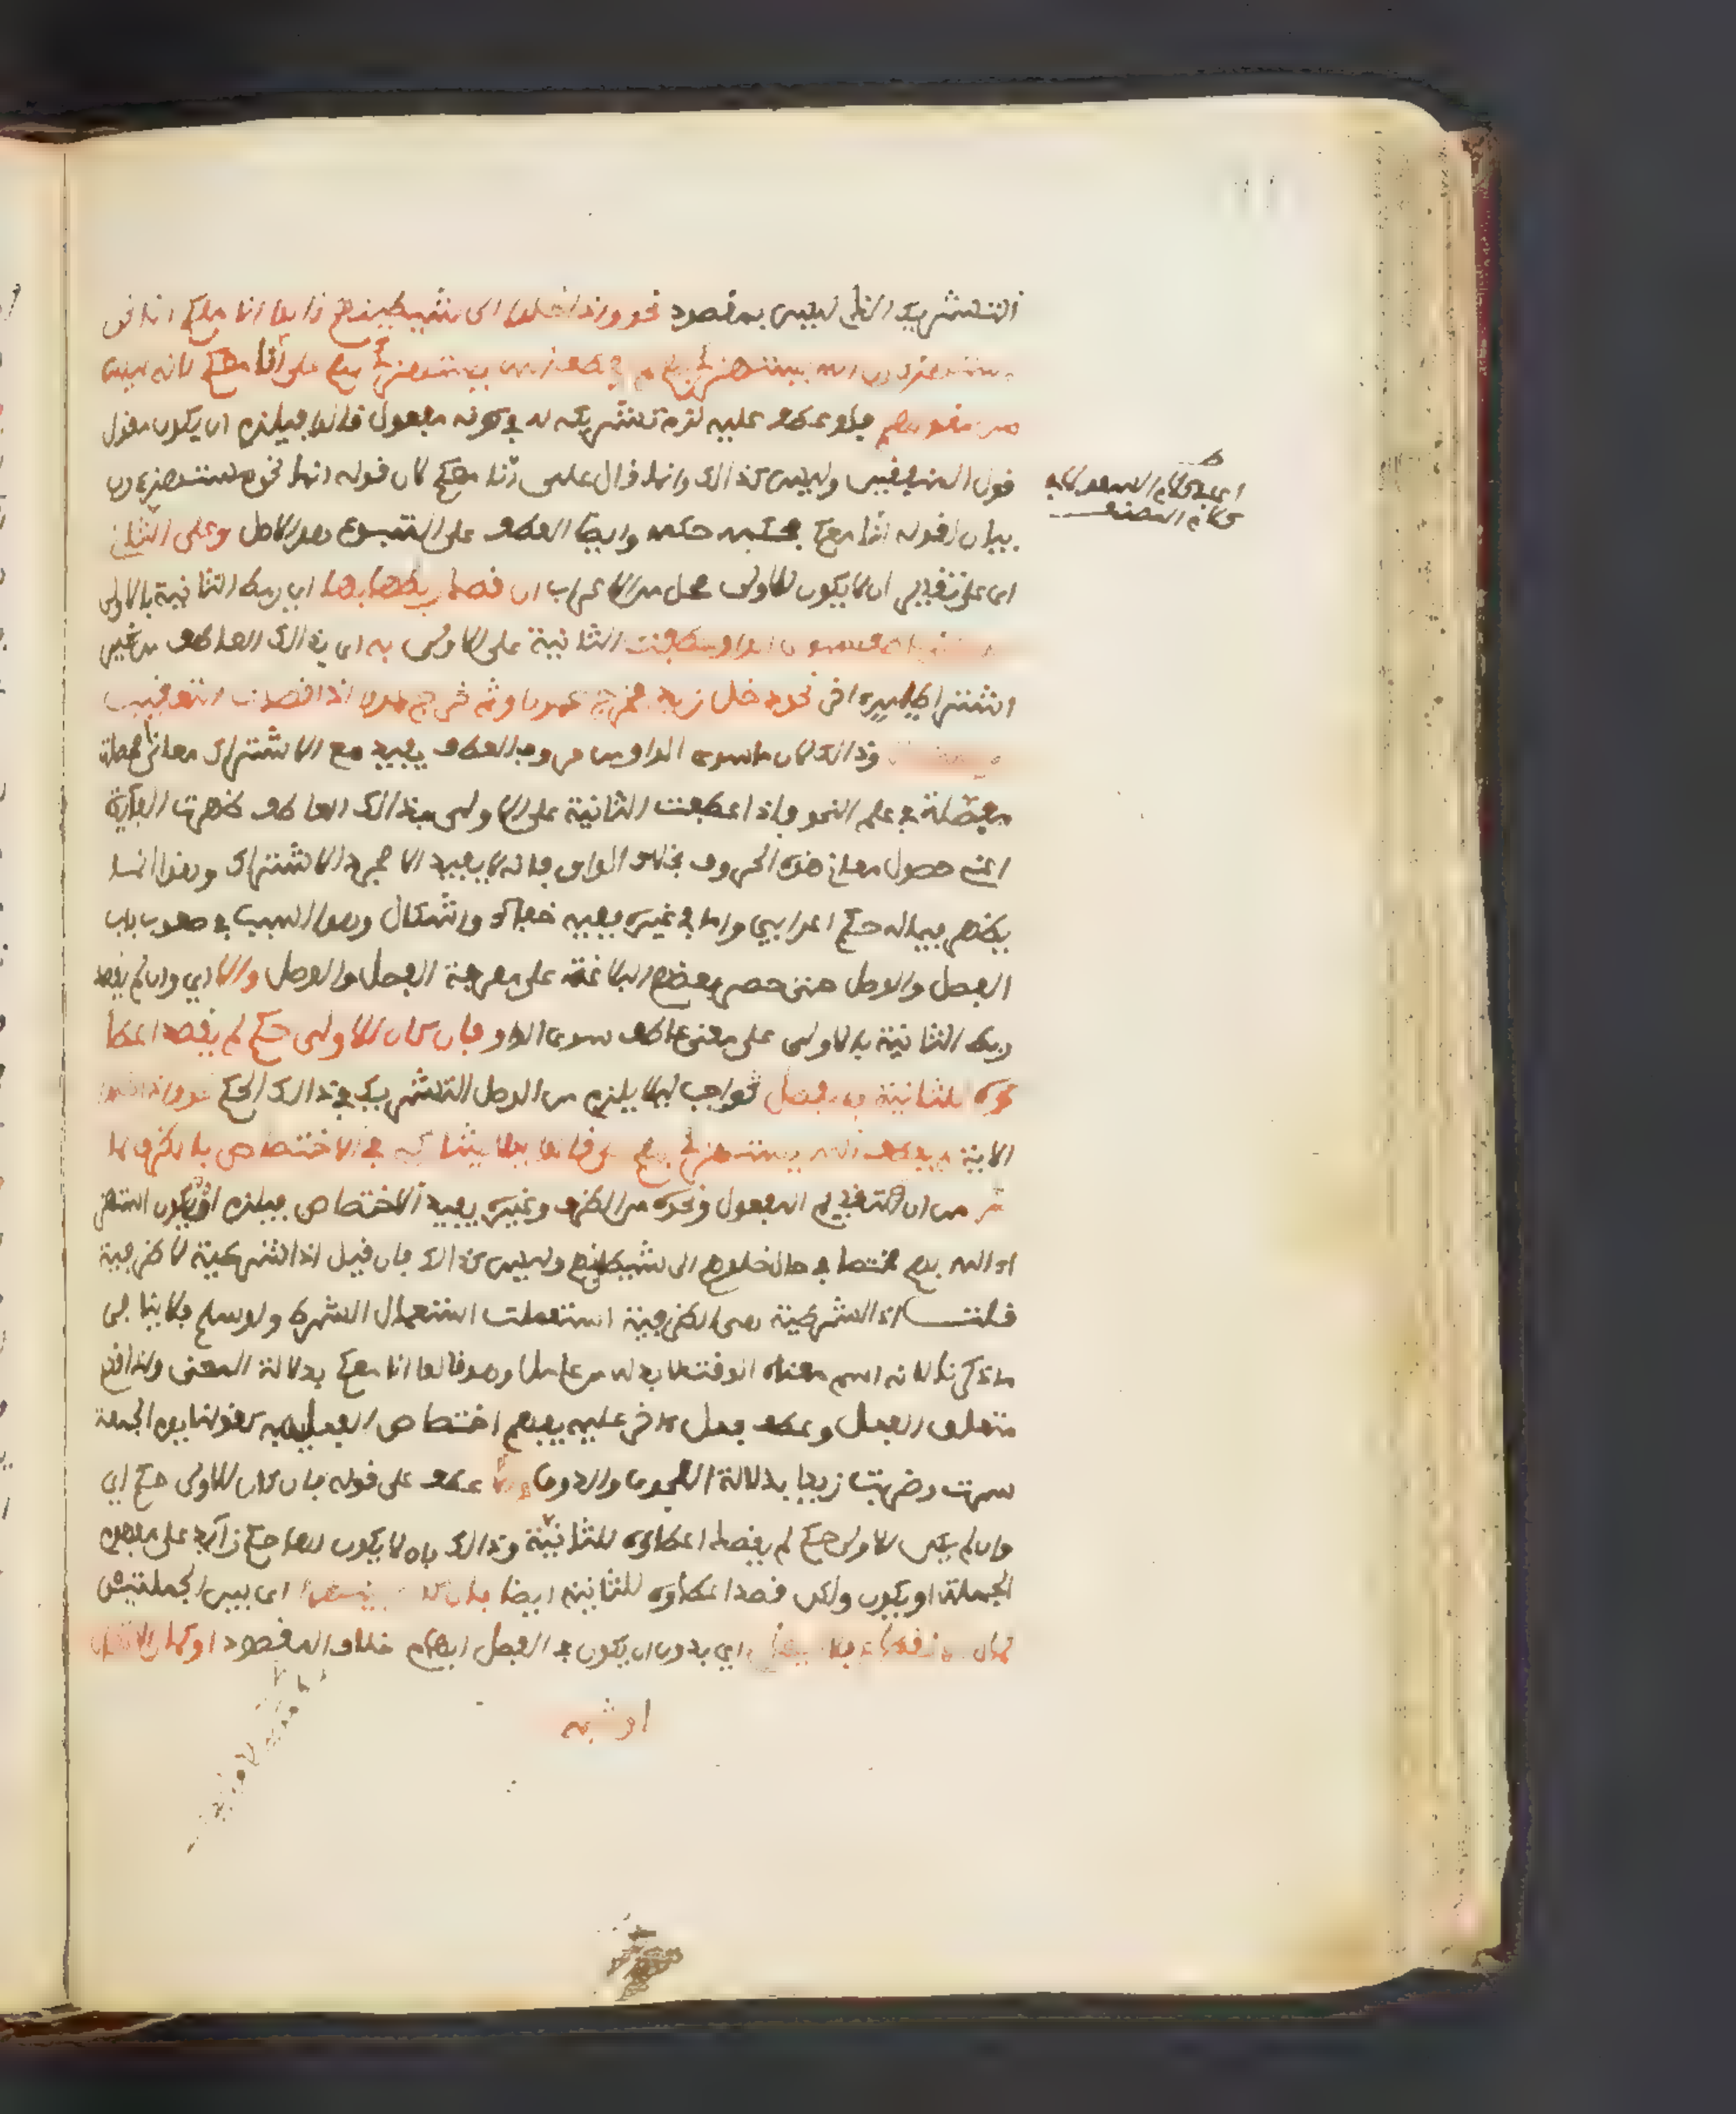 التشريك الذي ليس بمقصود نحو واذا خلوا الى شيطينهم قالوا انا معكم انما نحن
مستهزءون الله يستهزئ بهم لم يعطف الله يستهزئ بهم على انا معكم لانه ليس
من مقولهم فلو عطف عليه لزم تشريكه له في كونه مفعول قالوا فيلزم ان يكون مقول
قول المنافقين وليس كذالك وانما قال على انا معكم لان قوله انما نحن مستهزءون
بيان لقوله انا معكم فحكمه حكمه وايضا العطف على المتبوع هو الاصل وعلى الثاني
اى على تقدير ان لا يكون للاولى محل من الاعراب ان قصد ربطها بها اى ربط الثانية بالاولى
على معنى عاطف سوى الواو عطفت الثانية على الاولى به اى بذالك العاطف من غير
اشتراط امر اخر نحو دخل زيد فخرج عمرو او ثم خرج عمرو اذا قصد التعقيب
وذالك لان ما سوى الواو من حروف العطف يفيد مع الاشتراك معاني محصلة
مفصلة في علم النحو فاذا عطفت الثانية على الاولى بذالك العاطف ظهرت الفائدة
اعني حصول معاني هذه الحروف بخلاف الواو فانه لا يفيد الا مجرد الاشتراك وهذا انما
يظهر فيما له حكم اعرابي واما في غيره ففيه خفاء واشكال وهو السبب في صعوبة باب
الفصل والوصل حتى حصر بعضهم البلاغة على معرفة الفصل والوصل والا اي وان لم يقصد
ربط الثانية بالاولى على معنى عاطف سوى الواو فان كان للاولى حكم لم يقصد اعطا
ؤه للثانية فالفصل واجب ليلا يلزم من الوصل التشريك في ذالك الحكم نحو واذا خلوا
الاية لم يعطف الله يستهزئ بهم على قالوا ليلا يشاركه في الاختصاص بالظرف لما
مر من ان تقديم المفعول ونحوه من الظرف وغيره يفيد الاختصاص فيلزم ان يكون استهزا
ء الله بهم مختصا في حال خلوهم الى شيطينهم وليس كذالك فان قيل اذا الشرطية لا ظرفية
قلت اذا الشرطية هي الظرفية استعملت استعمال الشرط ولو سلم فلا ينافي
ما ذكرنا لانه اسم معناه الوقت لا بد له من عامل وهو قالوا انا معكم بدلالة المعنى واذا قدم
متعلق الفعل وعطف فعل اخر عليه يفهم اختصاص الفعلين به كقولنا يوم الجمعة
سرت وضربت زيدا بدلالة الفحوى والذوق والا عطف على قوله فان كان للاولى حكم اي
وان لم يكن للاولى حكم لم يقصد اعطاؤه للثانية وذالك بان لا يكون لها حكم زائد على مفهوم
الجملة او يكون ولكن قصد اعطاؤه للثانية ايضا فان كان بينهما اى بين الجملتين
كمال الانقطاع بلا ايهام اي بدون ان يكون في الفصل ايهام خلاف المقصود او كمال الاتصال
او شبه
اى في كلام السعد لا في
كلام المصنف